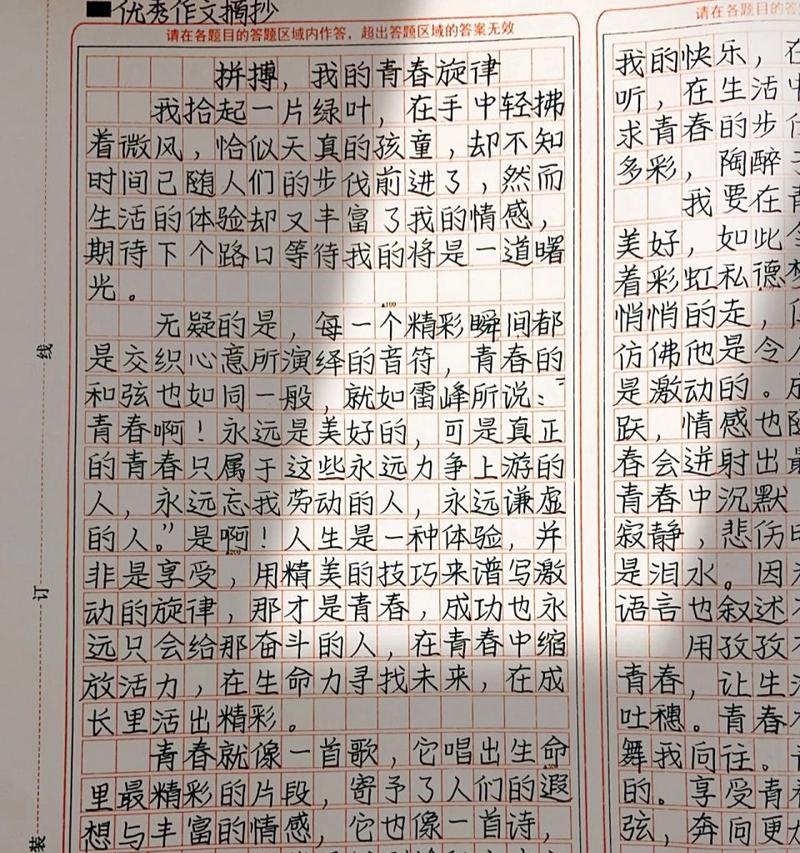 ■优秀作文摘抄
请在各题目的答题区域内作答，超出答题区域的答案无效
拼搏，我的青春旋律
我拾起一片绿叶，在手中轻拂
着微风，恰似天真的孩童，却不知
时间已随人们的步伐前进了，然而
生活的体验却又丰富了我的情感，
期待下个路口等待我的将是一道曙
光。
无疑的是，每一个精彩瞬间都
是交织心意所演绎的音符，青春的
和弦也如同一般，就如雷峰所说：“
青春啊！永远是美好的，可是真正
的青春只属于这些永远力争上游的
人，永远忘我劳动的人，永远谦虚
的人。”是啊！人生是一种体验，并
非是享受，用精美的技巧来谱写激
动的旋律，那才是青春，成功也永
远只会给那奋斗的人，在青春中缩
放活力，在生命力寻找未来，在成
长里活出精彩。
青春就像一首歌，它唱出生命
里最精彩的片段，寄予了人们的遐
想与丰富的情感，它也像一首诗，
请在各题目的答
我的快乐，在
听，在生活中
求青春的步伐
多彩，陶醉
我要在青
美好，如此
着彩虹私德梦
悄悄的走，
仿佛他是令人
是激动的。成
跃，情感也随
春会迸射出最
青春中沉默
寂静，悲伤
是泪水。因
语言也叙述不
用孜孜不
青春，让生活
吐穗。青春
舞我向往。
的。享受青春
弦，奔向更
线
订
装